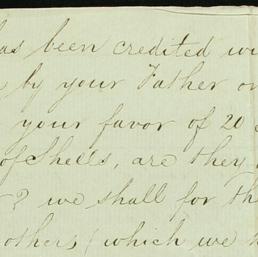 has been credited
by your Father
your favor of 20
of Shells, are they
? we shall for
others, (which we